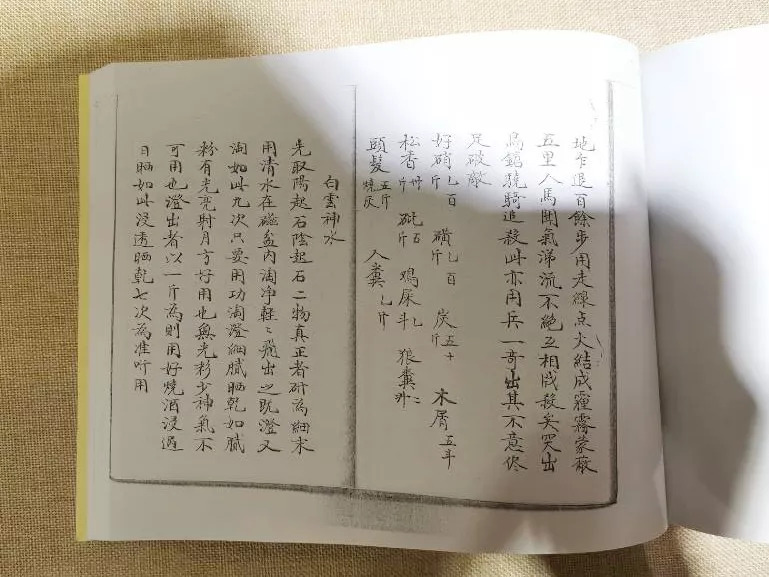 地乍退百餘步用走線点火結成霾霧蒙蔽
五里人馬聞氣涕流不絕互相戕殺矣突出
馬鎗驍騎追殺此亦用兵一奇出其不意侭
足破敵
好硝乚百斤 磺乚百斤 炭五十 木屑五斗
松香卅斤 砒五斤 鳮屎乚斗 狼糞二升
頭髮五斤燒灰 人糞乚斤
白雲神水
先取陽起石陰起石二物真正者研為細末
用清水在磁盆内淘净輕〻飛出之既澄又
淘如此九次只要用功淘澄細膩晒乾如膩
粉有光亮射月方好用也無光彩少神氣不
可用也澄出者以一斤為則用好燒酒浸過
日晒如此浸透晒乾七次為准听用